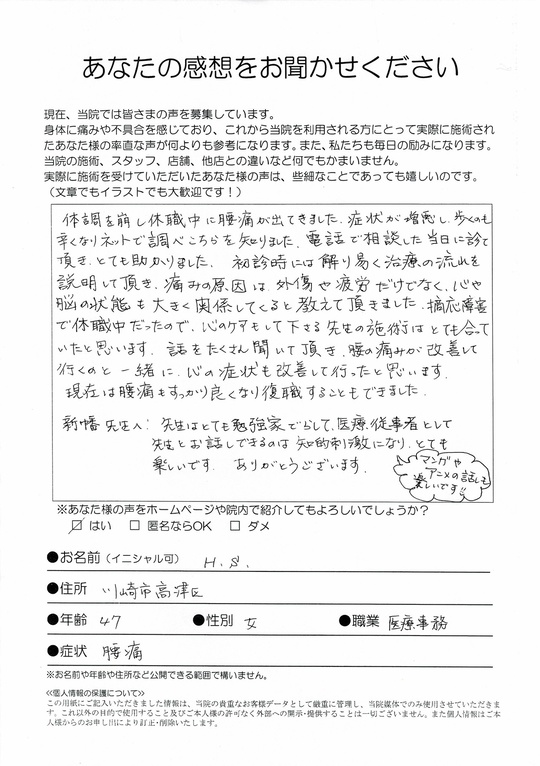 あなたの感想をお聞かせください
現在、当院では皆さまの声を募集しています。
身体に痛みや不具合を感じており、これから当院を利用される方にとって実際に施術され
たあなた様の率直な声が何よりも参考になります。また、私たちも毎日の励みになります。
当院の施術、スタッフ、店舗、他店との違いなど何でもかまいません。
実際に施術を受けていただいたあなた様の声は、些細なことであっても嬉しいのです。
（文章でもイラストでも大歓迎です！）
体調を崩し休職中に腰痛が出てきました。症状が増悪し、歩くのも
辛くなりネットで調べこちらを知りました。電話で相談した当日に診て
頂き、とても助かりました。 初診時には解り易く治療の流れを
説明して頂き、痛みの原因は、外傷や疲労だけでなく、心や
脳の状態も大きく関係してくると教えて頂きました。摘応障害
で休職中だったので、心のケアもして下さる先生の施術はとても合って
いたと思います。 話をたくさん聞いて頂き、腰の痛みが改善して
行くのと一緒に、心の症状も改善して行ったと思います。
現在は腰痛もすっかり良くなり復職することもできました。
新幡先生へ: 先生はとても勉強家でらして、医療従事者として
先生とお話しできるのは知的刺激になり、とても
楽しいです。 ありがとうございます。
マンガや
アニメの話しも
楽しいです!!
※あなた様の声をホームページや院内で紹介してもよろしいでしょうか？
☑ はい □ 匿名ならOK □ ダメ
●お名前（イニシャル可） H.S.
●住所 川崎市高津区
●年齢 47 ●性別 女 ●職業 医療事務
●症状 腰痛
※お名前や年齢や住所など公開できる範囲で構いません。
≪個人情報の保護について≫
この用紙にご記入いただきました情報は、当院の貴重なお客様データとして厳重に管理し、当院媒体でのみ使用させていただきま
す。これ以外の目的で使用すること及びご本人様の許可なく外部への開示・提供することは一切ございません。また個人情報はご本
人様からのお申し出により訂正・削除いたします。